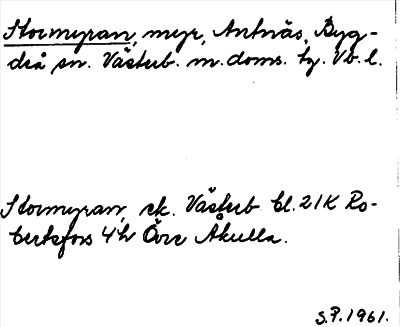 Stormyran, myr, Antnäs, Byg-
deå sn. Västerb. m. doms. tg. Vb. l.
Stormyran, ek. Västerb bl. 21K Ro-
bertsfors 4h Övre Åkulla.
S.P. 1961.